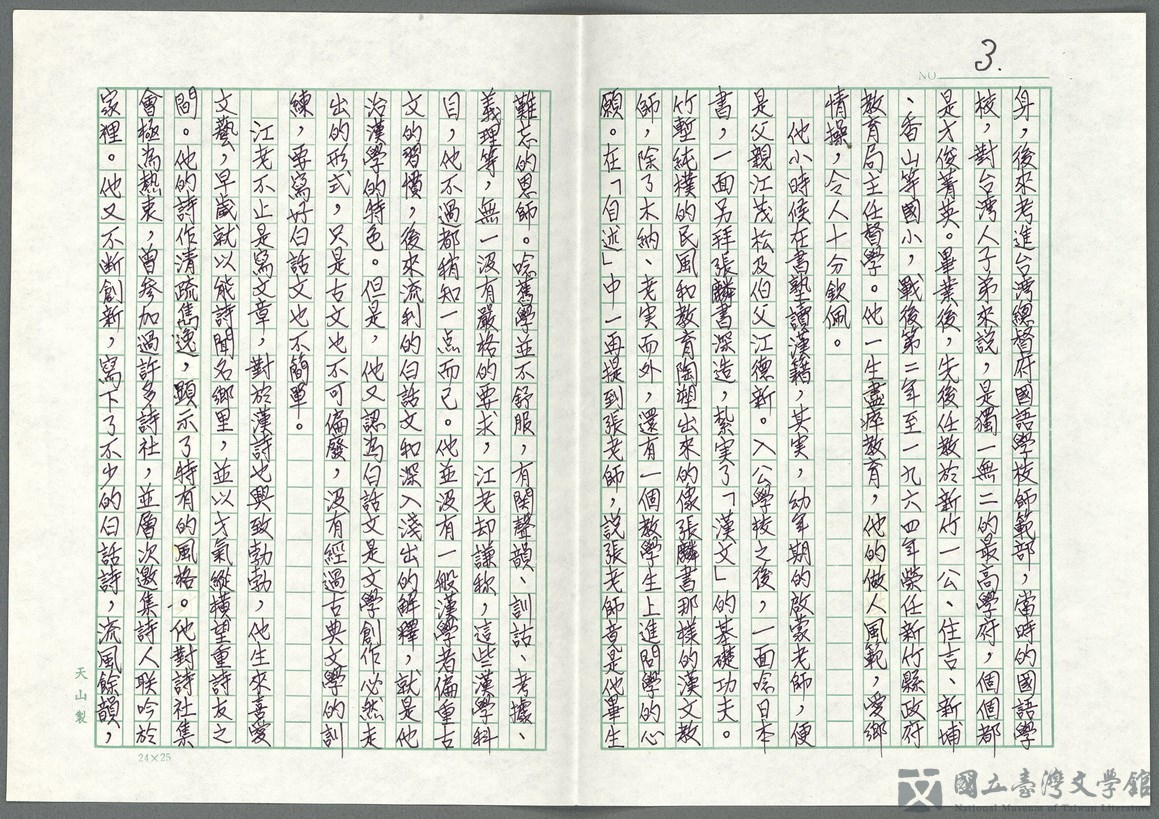 3.
NO.
身，後來考進台灣總督府國語學校師範部，當時的國語學
校，對台灣人子弟來說，是獨一無二的最高學府，個個都
是才俊菁英。畢業後，先後任教於新竹一公、住吉、新埔
、香山等國小，戰後第二年至一九六四年榮任新竹縣政府
教育局主任督學。他一生盡瘁教育，他的做人風範，愛鄉
情操，令人十分欽佩。
他小時候在書塾讀漢籍，其实，幼年期的啟蒙老師，便
是父親江茂松及伯父江德新。入公學校之後，一面唸日本
書，一面另拜張麟書深造，紮実了「漢文」的基礎功夫。
竹塹純樸的民風和教育陶塑出來的像張麟書那樣的漢文教
師，除了木納、老実而外，還有一個教學生上進問學的心
願。在「自述」中一再提到張老師，説張老師竟是他畢生
難忘的恩師。唸舊學並不舒服，有関聲韻、訓詁、考據、
義理等，無一没有嚴格的要求，江老却謙称，這些漢學科
目，他不過都稍知一点而已。他並没有一般漢學者偏重古
文的習慣，後來流利的白話文和深入淺出的解釋，就是他
治漢學的特色。但是，他又認為白話文是文學創作必然走
出的形式，只是古文也不可偏發，没有經過古典文學的訓
練，要寫好白話文也不簡單。
江老不止是寫文章，對於漢詩也興致勃勃，他生來喜愛
文藝，早歲就以能詩聞名鄉里，並以才氣縱橫望重詩友之
間。他的詩作清疏雋逸，顕示了特有的風格。他對詩社集
會極為熱衷，曾參加過許多詩社，並層次邀集詩人联吟於
家裡。他又不断創新，寫下了不少的白話詩，流風餘韻，
天山製
24×25
國立臺灣文學館
National Museum of Taiwan Literature